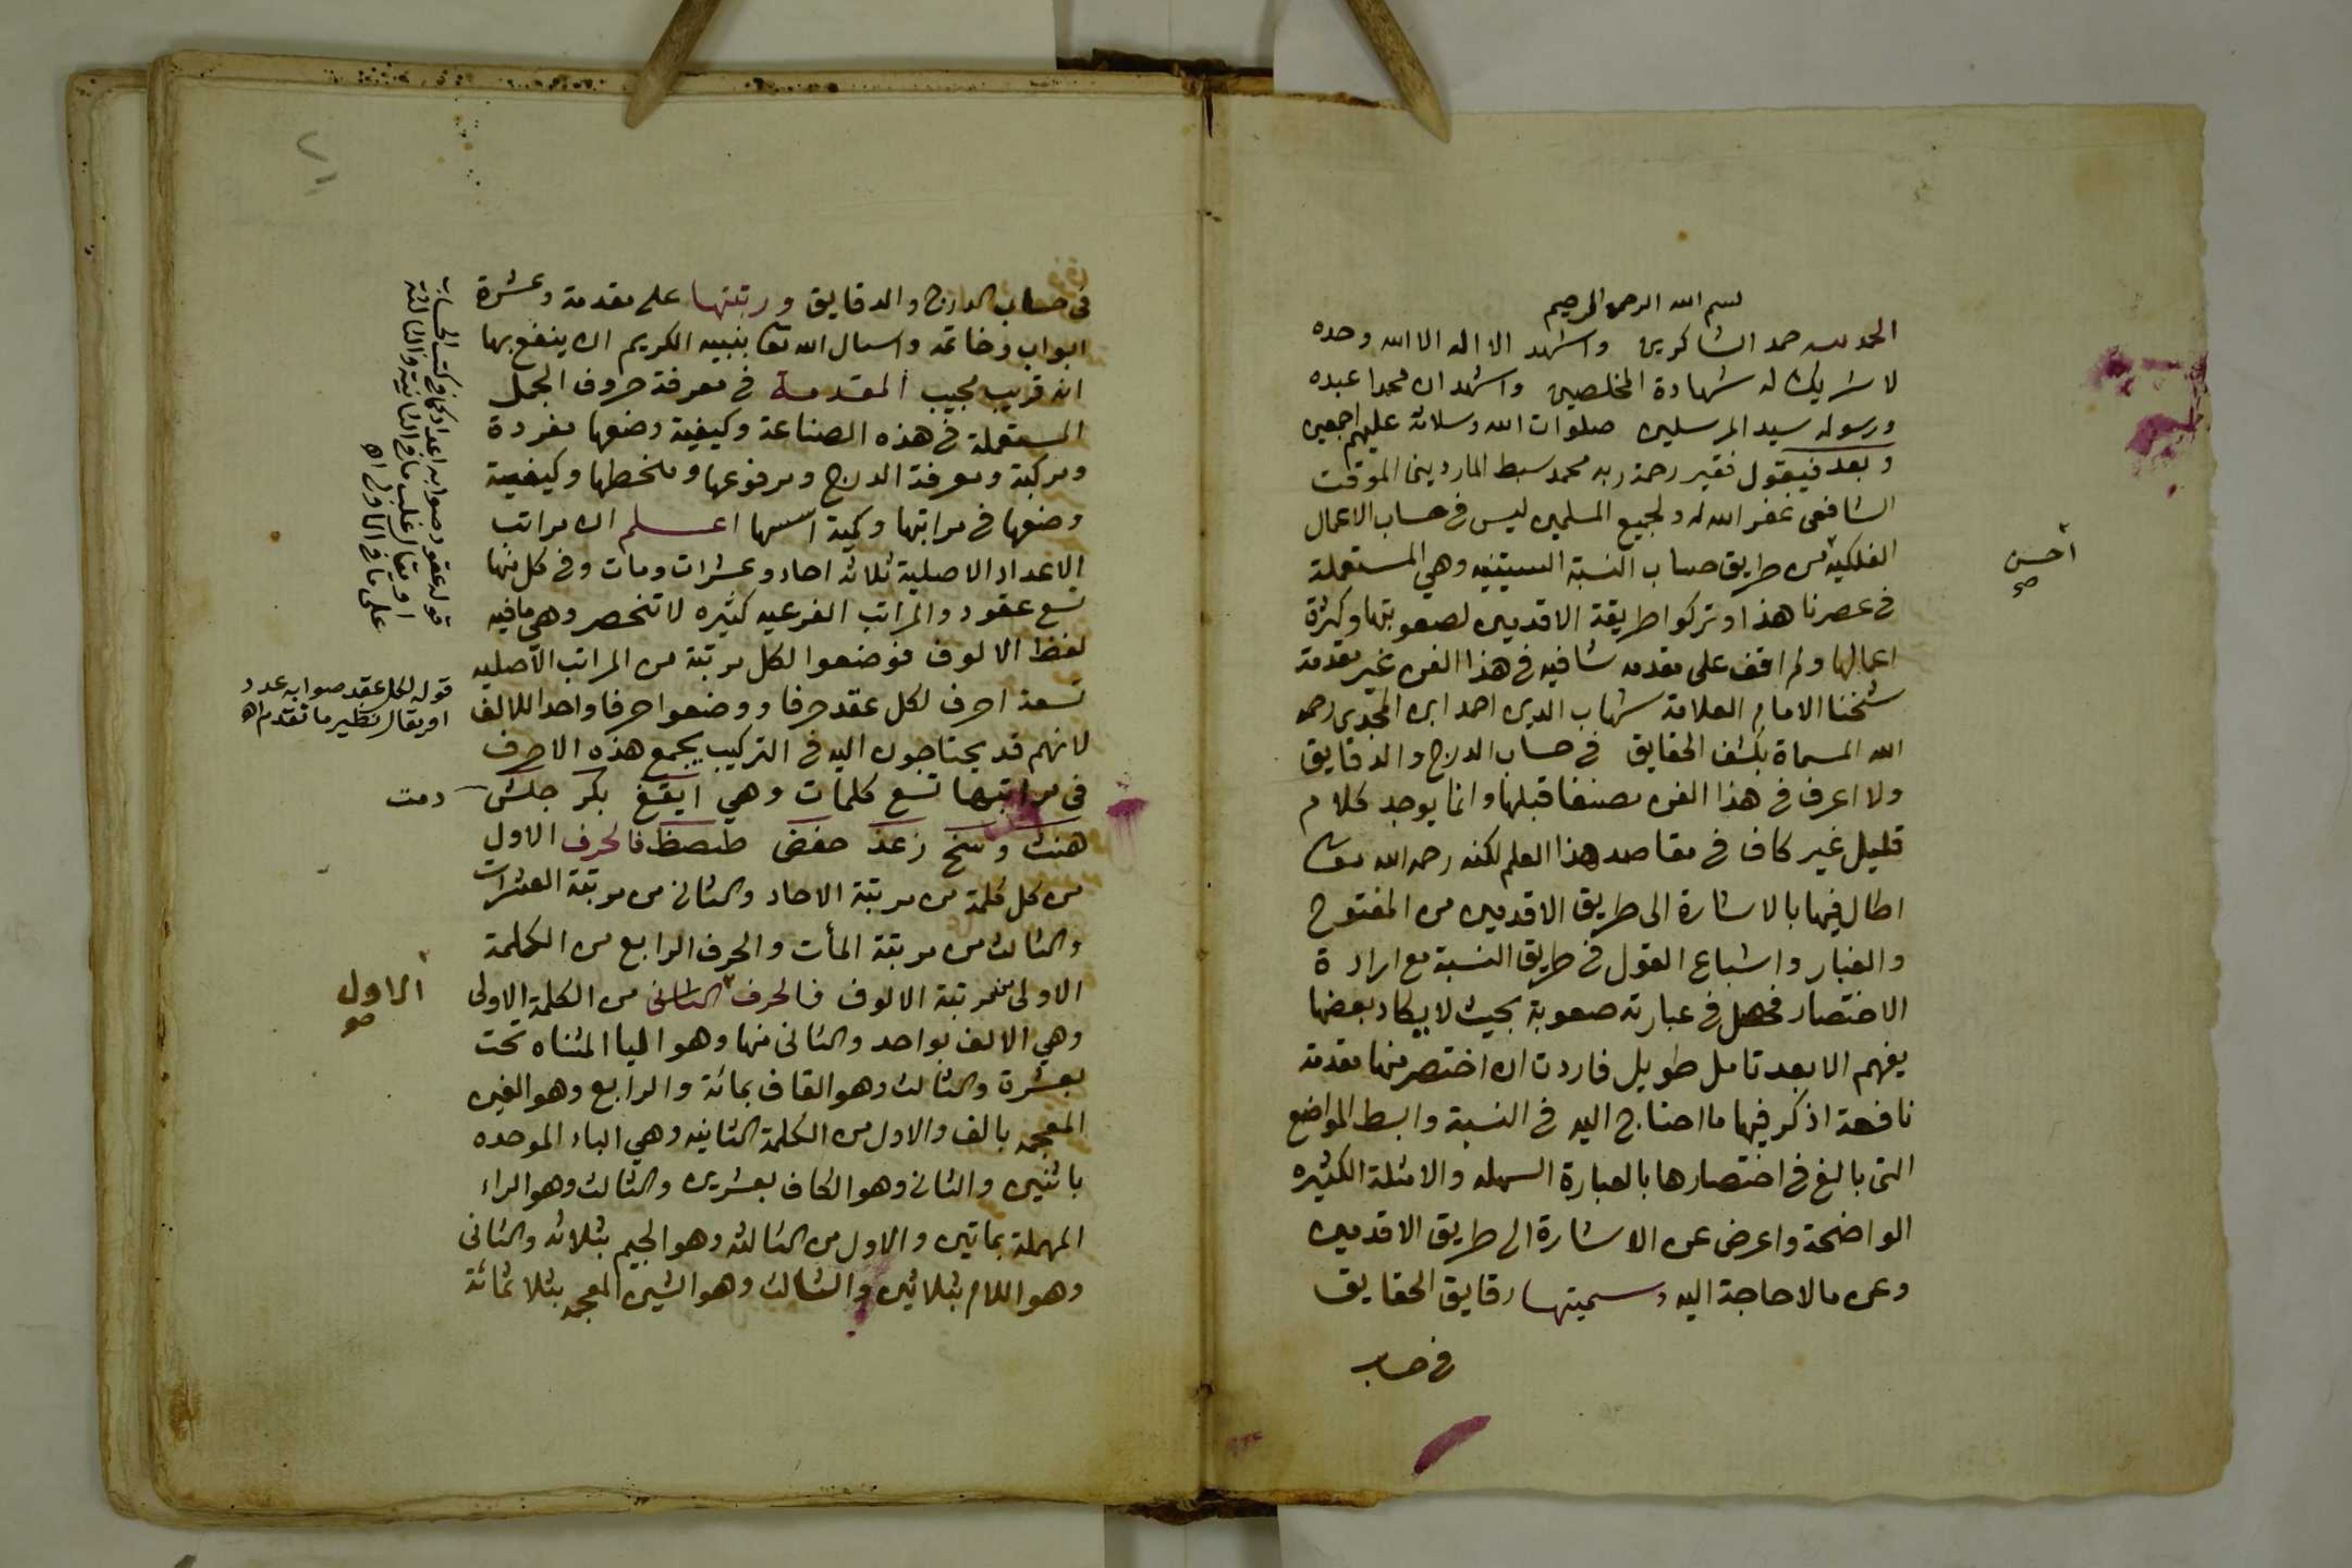 بسم الله الرحمن الرحيم
الحمد لله حمد الشاكرين واشهد الا اله الا الله وحده
لا شريك له شهادة المخلصين واشهد ان محمدا عبده
ورسوله سيد المرسلين صلوات الله وسلامه عليهم اجمعين
وبعد فيقول فقير رحمة ربه محمد سبط الماردينى الموقت
الشافعى غفر الله له ولجميع المسلمين ليس فى حساب الاعمال
الفلكيه من طريق حساب النسبة الستينيه وهي المستعملة
احسن
صح
فى عصرنا هذا وتركوا طريقة الاقدمين لصعوبتها وكثرة
اعمالها ولم اقف على مقدمه شافيه فى هذا الفن غير مقدمة
شيخنا الامام العلامة شهاب الدين احمد ابن المجدى رحمه
الله المسماة بكشف الحقايق فى حساب الدرج والدقايق
ولا اعرف فى هذا الفن مصنفا قبلها وانما يوجد كلام
قليل غير كاف فى مقاصد هذا العلم لكنه رحمه الله تعا
اطال فيها بالاشارة الى طريق الاقدمين من المفتوح
والغبار واشباع القول فى طريق النسبة مع ارادة
الاختصار فحصل فى عبارته صعوبة بحيث لا يكاد بعضها
يفهم الا بعد تامل طويل فاردت ان اختصر منها مقدمة
نافعة اذكر فيها ما احتاج اليه فى النسبة وابسط المواضع
التى بالغ فى اختصارها بالعبارة السهله والامثلة الكثيره
الواضحة واعرض عن الاشارة الى طريق الاقدمين
وعن مالا حاجة اليه وسميتها رقايق الحقايق
فى حساب
فى حساب الدرج والدقايق ورتبتها على مقدمة وعشرة
ابواب وخاتمه واسال الله تعا بنبيه الكريم ان ينفع بها
انه قريب مجيب المقدمة فى معرفة حروف الجمل
المستعملة فى هذه الصناعة وكيفية وضعها مفردة
ومركبة ومعرفة الدرج ومرفوعها ومنحطها وكيفية
وضعها فى مراتبها وكمية اسسها اعلم ان مراتب
الاعداد الاصلية ثلاثه احاد وعشرات ومات وفى كل منها
تسع عقود والمراتب الفرعيه كثيره لا تنحصر وهي ما فيه
لفظ الالوف فوضعوا لكل مرتبة من المراتب الاصليه
تسعة احرف لكل عقد حرفا ووضعوا حرفا واحدا للالف
لانهم قد يحتاجون اليه فى التركيب يجمع هذه الاحرف
فى مراتبها تسع كلمات وهي ايقغ بكر جلش دمت
هنث وسخ زعذ حفض طصظ فالحرف الاول
من كل كلمة من مرتبة الاحاد والثانى من مرتبة العشرات
والثالث من مرتبة المأت والحرف الرابع من الكلمة
الاولى من مرتبة الالوف فالحرف الثانى من الكلمة الاولى
الاول
صح
وهي الالف بواحد والثانى منها وهو اليا المثناه تحت
بعشرة والثالث وهو القاف بمائة والرابع وهو الغين
المعجمه بالف والاول من الكلمة الثانيه وهي الباء الموحده
باثنين والثانى وهو الكاف بعشرين والثالث وهو الراء
المهملة بماتين والاول من الثالثه وهو الجيم بثلاثه والثانى
وهو اللام بثلاثين والثالث وهو الشين المعجمه بثلاثمائة
قوله عقود صوابه اعداد كما فى كتب الحساب
او يقال غلب ما فى الثانية والثالثة
على ما فى الاولى اه
قوله لكل عقد صوابه عدد
او يقال نظير ما تقدم اه